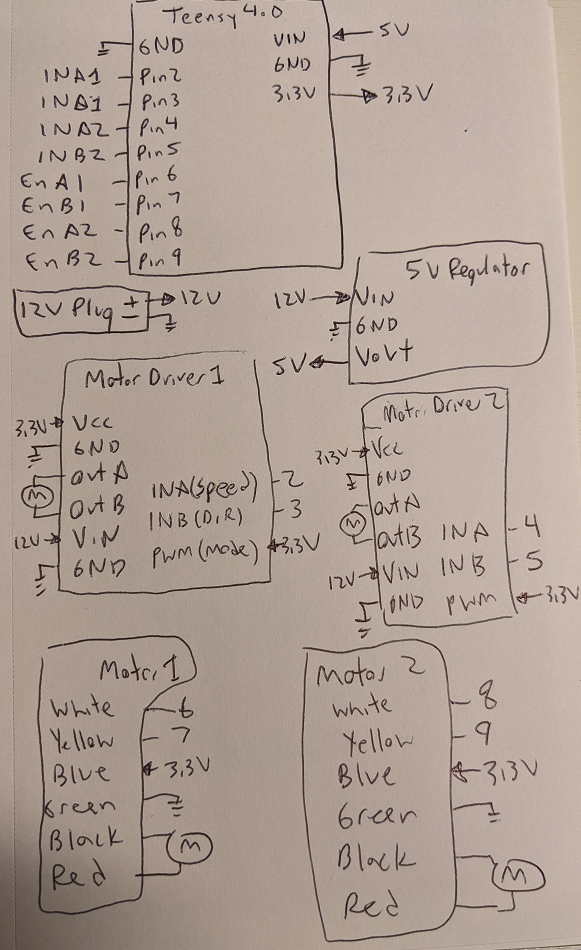 Teensy 4.0
GND VIN 5V
INA1 Pin2 GND
INA1 Pin3 3.3V 3.3V
INA2 Pin4
INB2 Pin5
EnA1 Pin6
EnB1 Pin7
EnA2 Pin8
EnB2 Pin9
12V Plug + 12V
-
5V Regulator
12V VIN
GND
5V Vout
Motor Driver 1
3.3V Vcc
GND
M OutA INA(Speed) 2
OutB INB(DIR) 3
12V VIN PWM(Mode) 3.3V
GND
Motor Driver 2
3.3V Vcc
GND
M OutA
OutB INA 4
12V VIN INB 5
GND PWM 3.3V
Motor 1
White 6
Yellow 7
Blue 3.3V
Green
Black M
Red
Motor 2
White 8
Yellow 9
Blue 3.3V
Green
Black M
Red